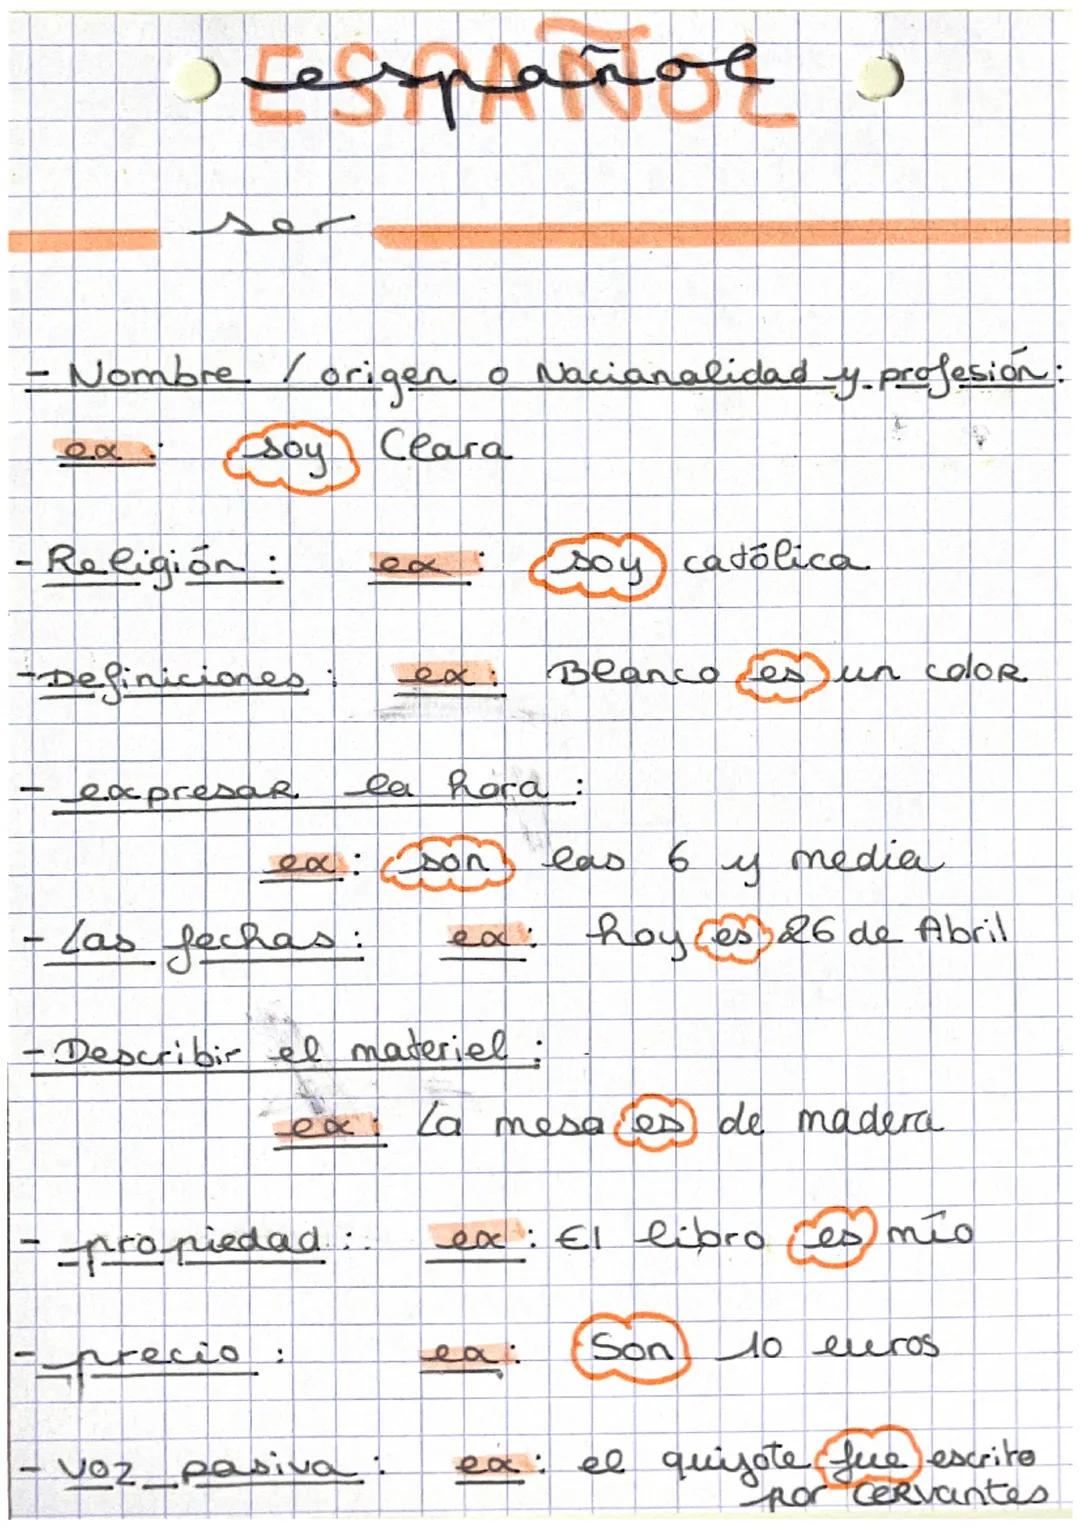 ESPAÑOL
español
ser
- Nombre / origen o Nacianalidad y profesión:
ex: soy Clara
- Religión: ex: soy católica
- Definiciones: ex: Blanco es un color
- expresar la hora:
ex: son las 6 y media
- Las fechas: ex: hoy es 26 de Abril
- Describir el materiel:
ex: La mesa es de madera
- propiedad: ex: El libro es mío
- precio: ex: Son 10 euros
- voz pasiva: ex: el quijote fue escrito
por CERvantes